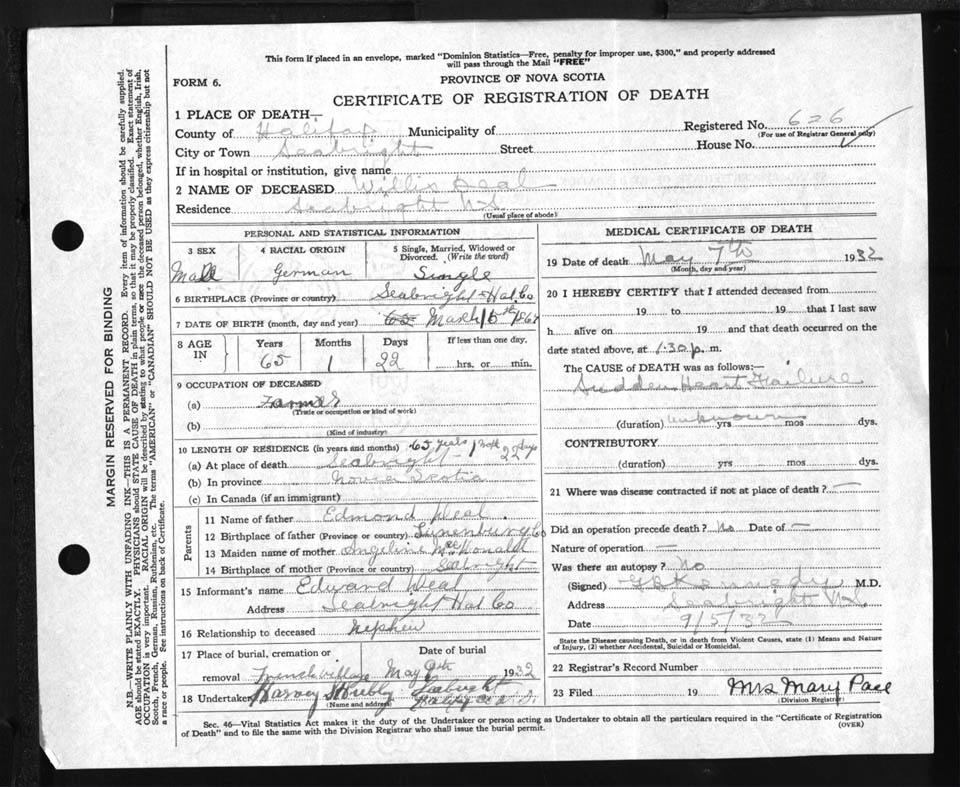 This form if placed in an envelope, marked "Dominion Statistics—Free, penalty for improper use, $300," and properly addressed
will pass through the Mail "FREE"
FORM 6.
PROVINCE OF NOVA SCOTIA
CERTIFICATE OF REGISTRATION OF DEATH
1 PLACE OF DEATH—
County of Halifax Municipality of Registered No. 626
(For use of Registrar General only)
City or Town Seabright Street House No.
If in hospital or institution, give name
2 NAME OF DECEASED Willis Deal
Residence Seabright N.S.
(Usual place of abode)
PERSONAL AND STATISTICAL INFORMATION
3 SEX 4 RACIAL ORIGIN 5 Single, Married, Widowed or
Divorced. (Write the word)
Male German Single
6 BIRTHPLACE (Province or country) Seabright Hal. Co
7 DATE OF BIRTH (month, day and year) 65 March 15th 1867
8 AGE IN Years Months Days If less than one day,
65 1 22 hrs. or min.
9 OCCUPATION OF DECEASED
(a) Farmer
(Trade or occupation or kind of work)
(b)
(Kind of industry)
10 LENGTH OF RESIDENCE (in years and months) 65 years 1 mth 22 days
(a) At place of death Seabright
(b) In province Nova Scotia
(c) In Canada (if an immigrant)
Parents
11 Name of father Edmond Deal
12 Birthplace of father (Province or country) Lunenburg Co
13 Maiden name of mother Angeline McDonald
14 Birthplace of mother (Province or country) Seabright
15 Informant's name Edward Deal
Address Seabright Hal Co
16 Relationship to deceased Nephew
17 Place of burial, cremation or Date of burial
removal French village May 9th 1932
18 Undertaker Harvey Seabright
(Name and address)
MEDICAL CERTIFICATE OF DEATH
19 Date of death May 7th 1932
(Month, day and year)
20 I HEREBY CERTIFY that I attended deceased from
19 to 19 that I last saw
h alive on 19 and that death occurred on the
date stated above, at 1.30 p. m.
The CAUSE OF DEATH was as follows:—
Sudden Heart Failure
(duration) unknown yrs mos dys.
CONTRIBUTORY
(duration) yrs mos dys.
21 Where was disease contracted if not at place of death? —
Did an operation precede death? No Date of —
Nature of operation —
Was there an autopsy? No
(Signed) Kennedy M.D.
Address Seabright N.S.
Date 9/5/32
State the Disease causing Death, or in death from Violent Causes, state (1) Means and Nature
of Injury, (2) whether Accidental, Suicidal or Homicidal.
22 Registrar's Record Number
23 Filed 19 Mrs Mary Pace
(Division Registrar)
Sec. 46—Vital Statistics Act makes it the duty of the Undertaker or person acting as Undertaker to obtain all the particulars required in the "Certificate of Registration
of Death" and to file the same with the Division Registrar who shall issue the burial permit. (OVER)
MARGIN RESERVED FOR BINDING
N.B.—WRITE PLAINLY WITH UNFADING INK—THIS IS A PERMANENT RECORD. Every item of information should be carefully supplied.
AGE should be stated EXACTLY. PHYSICIANS should STATE CAUSE OF DEATH in plain terms, so that it may be properly classified. Exact statement of
OCCUPATION is very important. RACIAL ORIGIN will be described by stating to what people or race the deceased person belonged, whether English, Irish,
Scotch, French, German, Russian, Ruthenian, etc. The terms "AMERICAN" or "CANADIAN" SHOULD NOT BE USED as they express citizenship but not
a race or people. See instructions on back of Certificate.